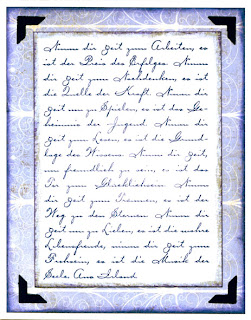 Nimm dir Zeit zum Arbeiten, es
ist der Preis des Erfolges. Nimm
dir Zeit zum Nachdenken, es ist
die Quelle der Kraft. Nimm dir
Zeit um zu Spielen, es ist das Ge-
heimnis der Jugend. Nimm dir
Zeit zum Lesen, es ist die Grund-
lage des Wissens. Nimm dir Zeit,
um freundlich zu sein, es ist das
Tor zum Glücklichsein. Nimm
dir Zeit zum Träumen, es ist der
Weg zu den Sternen. Nimm dir
Zeit um zu Lieben, es ist die wahre
Lebensfreude, nimm dir Zeit zum
Frohsein, es ist die Musik der
Seele. Aus Irland